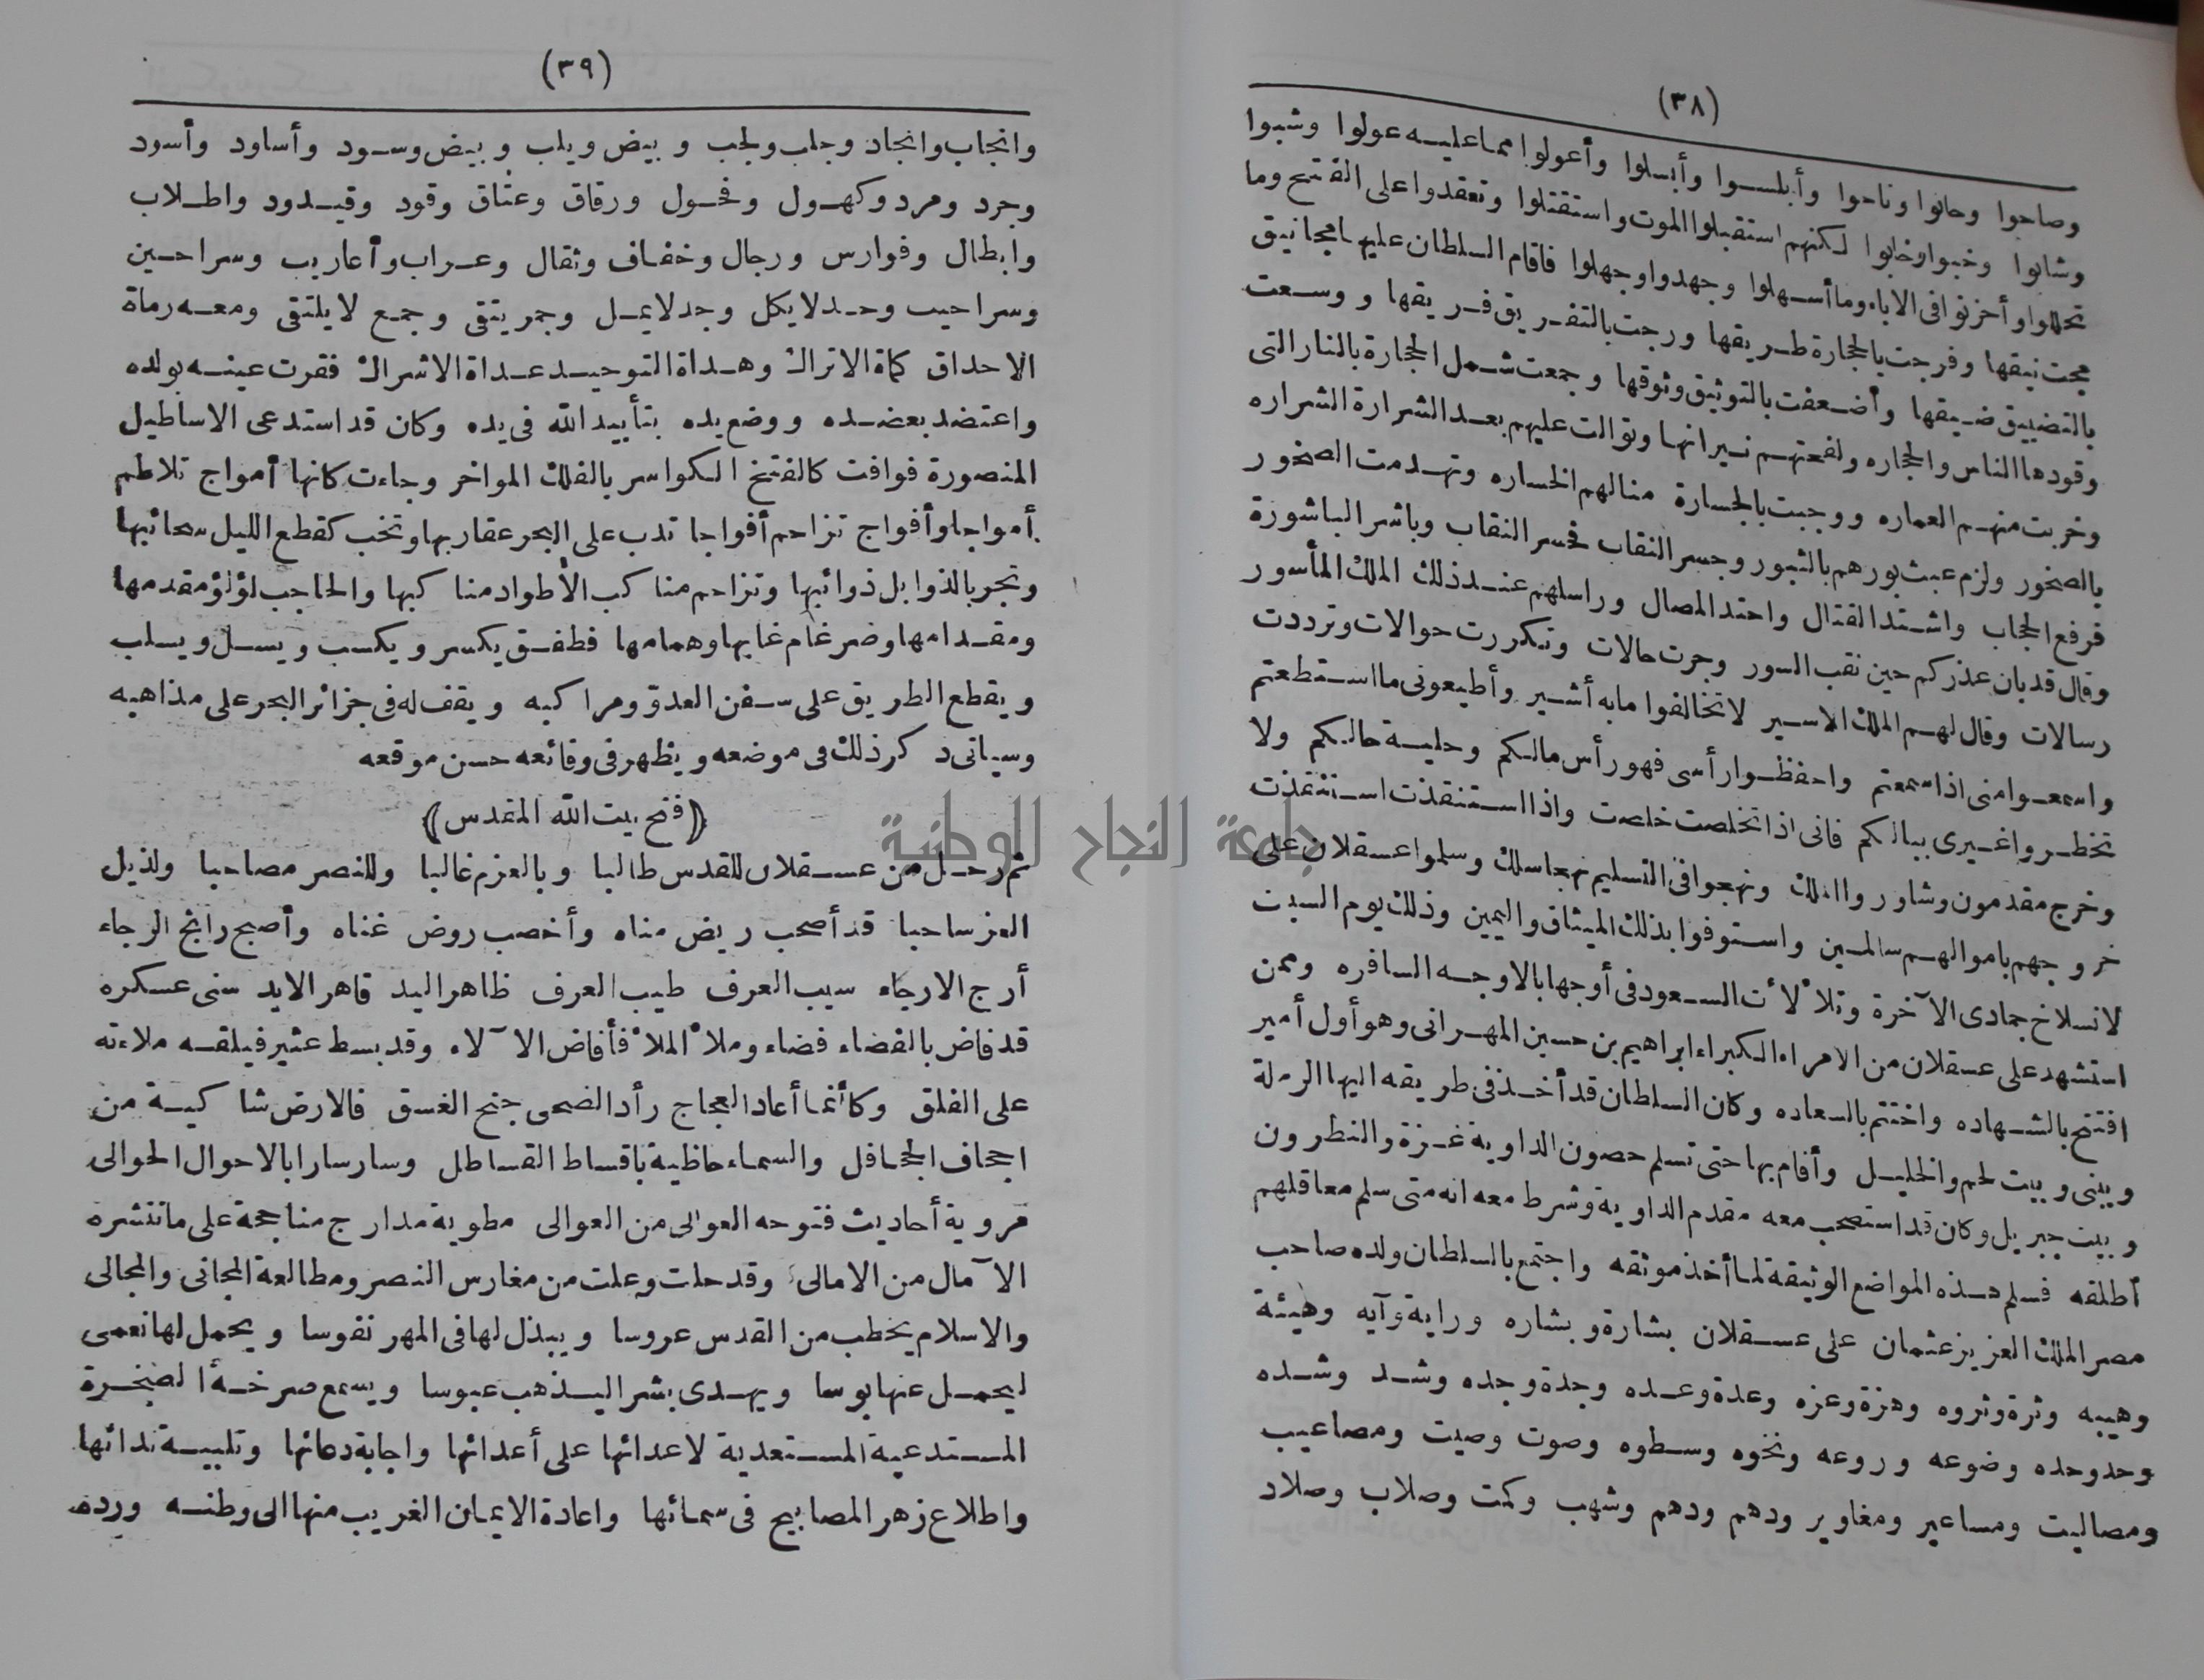 (٣٨)
وصاحوا وحانوا وناحوا وأبلسوا وأبسلوا وأعولوا مما عليه عولوا وشبوا
وشابوا وخبوا وخابوا لكنهم استقبلوا الموت واستقتلوا وتعقدوا على الفتح وما
تحللوا وأخزنوا فى الاباء وما أسهلوا وجهدوا وجهلوا فاقام السلطان عليها مجانيق
مجت نيقها وفرجت بالحجارة طريقها ورجت بالتفريق فريقها ووسعت
بالتضييق ضيقها وأضعفت بالتوثيق وثوقها وجمعت شمل الحجارة بالنار التى
وقودها الناس والحجاره ولفحتهم نيرانها وتوالت عليهم بعد الشرارة الشراره
وخربت منهم العماره ووجبت بالجسارة منا لهم الخساره وتهدمت الصخور
بالصخور ولزم عبث بورهم بالثبور وجسر النقاب فحسر النقاب وباشر الباشورة
فرفع الحجاب واشتد القتال واحتد المصال وراسلهم عند ذلك الملك المأسور
وقال قد بان عذركم حين نقب السور وجرت حالات وتكررت حوالات وترددت
رسالات وقال لهم الملك الاسير لا تخالفوا ما به أشير وأطيعونى ما استطعتم
واسمعوا منى اذا سمعتم واحفظوا رأسى فهو رأس مالكم وحلية حالكم ولا
تخطروا غيرى ببالكم فانى اذا تخلصت خلصت واذا استنقذت استنقذت
وخرج مقدمون وشاوروا الملك ونهجوا فى التسليم نهجا سلك وسلموا عسقلان على
خروجهم باموالهم سالمين واستوفوا بذلك الميثاق واليمين وذلك يوم السبت
لانسلاخ جمادى الآخرة وتلألأت السعود فى أوجها بالاوجه السافره وممن
استشهد على عسقلان من الامراء الكبراء ابراهيم بن حسين المهرانى وهو أول أمير
افتتح بالشهاده واختتم بالسعاده وكان السلطان قد أخذ فى طريقه اليها الرملة
ويبنى وبيت لحم والخليل وأقام بها حتى تسلم حصون الداوية غزة والنطرون
وبيت جبريل وكان قد استصحب معه مقدم الداوية وشرط معه انه متى سلم معاقلهم
أطلقه فسلم هذه المواضع الوثيقة لما أخذ موثقه واجتمع بالسلطان ولده صاحب
مصر الملك العزيز عثمان على عسقلان بشارة وبشاره وراية وآيه وهيئة
وهيبه وثرة وثروه وهزة وعزه وعدة وعده وجدة وجده وشد وشده
وحد وحده وضوعه وروعه ونخوه وسطوه وصوت وصيت ومصاعيب
ومصاليت ومساعير ومغاوير ودهم ودهم وشهب وكمت وصلاب وصلاد
(٣٩)
وانجاب وانجاد وجلب ولجب وبيض ويلب وبيض وسود وأساود وأسود
وجرد ومرد وكهول وفحول ورقاق وعتاق وقود وقيدود واطلاب
وابطال وفوارس ورجال وخفاف وثقال وعراب وأعاريب وسراحين
وسراحيب وحد لا يكل وجد لا يمل وجمر يتقى وجمع لا يلتقى ومعه رماة
الاحداق كماة الاتراك وهداة التوحيد عداة الاشراك فقرت عينه بولده
واعتضد بعضده ووضع يده بتأييد الله فى يده وكان قد استدعى الاساطيل
المنصورة فوافت كالفتخ الكواسر بالفلك المواخر وجاءت كانها أمواج تلاطم
أمواجا وأفواج تزاحم أفواجا تدب على البحر عقاربها وتخب كقطع الليل سحائبها
وتجر بالذوابل ذوائبها وتزاحم مناكب الأطواد مناكبها والحاجب لؤلؤ مقدمها
ومقدامها وضرغام غابها وهمامها فطفق يكسر ويكسب ويسل ويسلب
ويقطع الطريق على سفن العدو ومراكبه ويقف له فى جزائر البحر على مذاهبه
وسياتى ذكر ذلك فى موضعه ويظهر فى وقائعه حسن موقعه
﴿فتح بيت الله المقدس﴾
ثم رحل من عسقلان للقدس طالبا وبالعزم غالبا وللنصر مصاحبا ولذيل
العز ساحبا قد أصحب ريض مناه وأخصب روض غناه وأصبح رائج الرجاء
أرج الارجاء سيب العرف طيب العرف ظاهر اليد قاهر الايد سنى عسكره
قد فاض بالفضاء فضاء وملأ الملأ فأفاض الآلاء وقد بسط عثير فيلقه ملاءته
على الفلق وكأنما أعاد العجاج رأد الضحى جنح الغسق فالارض شاكية من
اجحاف الجحافل والسماء حاظية باقساط القساطل وسار سارا بالاحوال الحوالى
مروية أحاديث فتوحه العوالى من العوالى مطوية مدارج مناجحه على ما تنشره
الآمال من الامالى وقد حلت وعلت من مغارس النصر ومطالعة المجانى والمجالى
والاسلام يخطب من القدس عروسا ويبذل لها فى المهر نفوسا ويحمل لها نعمى
ليحمل عنها بوسا ويهدى بشرا ليذهب عبوسا ويسمع صرخة الصخرة
المستدعية المستعدية لاعدائها على أعدائها واجابة دعائها وتلبية ندائها
واطلاع زهر المصابيح فى سمائها واعادة الايمان الغريب منها الى وطنه ورده
جامعة النجاح الوطنية